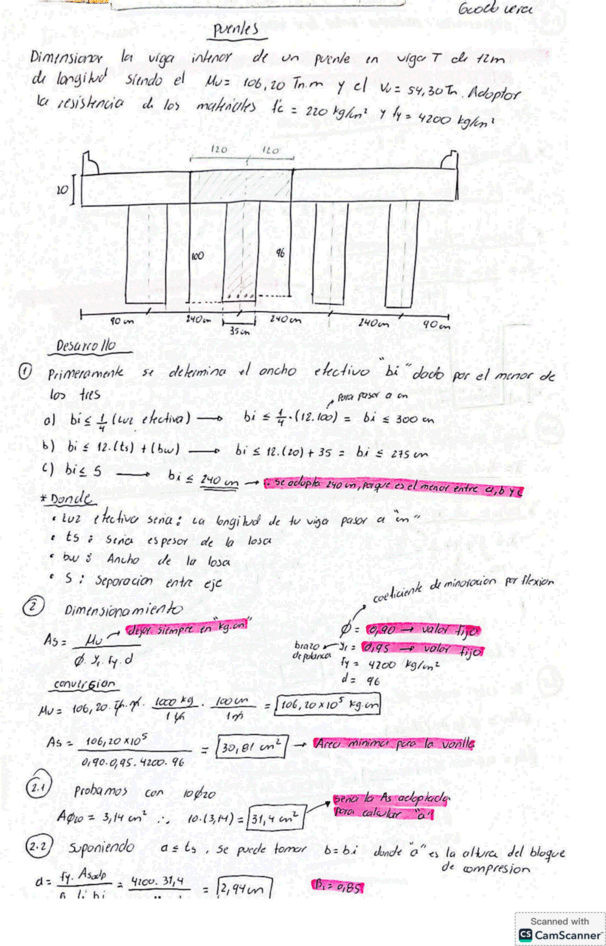 puentes
Dimensionar la viga interior de un puente en viga T de 12m
de longitud siendo el Mu= 106,20 Tn.m y el Vu= 54,30Tn. Adoptar
la resistencia de los materiales f'c = 220 kg/cm² y fy = 4200 kg/cm²
120 120
20
100
96
90 cm 240cm 35cm 240cm 240cm 90cm
Desarrollo
① Primeramente se determina el ancho efectivo "bi" dado por el menor de
los tres
para pasar a cm
a) bi ≤ 1/4 (luz efectiva) → bi ≤ 1/4 . (12.100) = bi ≤ 300 cm
b) bi ≤ 12.(ts) + (bw) → bi ≤ 12.(20) + 35 = bi ≤ 275 cm
c) bi ≤ S → bi ≤ 240 cm → ∴ se adopta 240 cm, porque es el menor entre a, b y c
* Donde
• Luz efectiva seria: La longitud de tu viga pasar a "cm"
• ts : seria espesor de la losa
• bw : Ancho de la losa
• S : Separacion entre eje
② Dimensionamiento
coeficiente de minoracion por flexion
As = Mu / Ø. y1. fy. d
dejar siempre en "kg.cm"
Ø = 0,90 → valor fijo
brazo de palanca
y1 = 0,95 → valor fijo
fy = 4200 kg/cm²
d = 96
conversion
Mu = 106,20 . Tn . m . 1000 kg / 1 Tn . 100 cm / 1 m = 106,20 x10⁵ kg.cm
As = 106,20 x10⁵ / 0,90. 0,95. 4200. 96 = 30,81 cm² → Area minima para la varilla
2.1 Probamos con 10Ø20
AØ20 = 3,14 cm² ∴ 10.(3,14) = 31,4 cm²
seria la As adoptada
para calcular "a"
2.2 Suponiendo a ≤ ts , se puede tomar b=bi donde "a" es la altura del bloque
de compresion
a = fy. Asadp = 4200. 31,4 = 2,94cm
β1 = 0,85
Scanned with
CS CamScanner